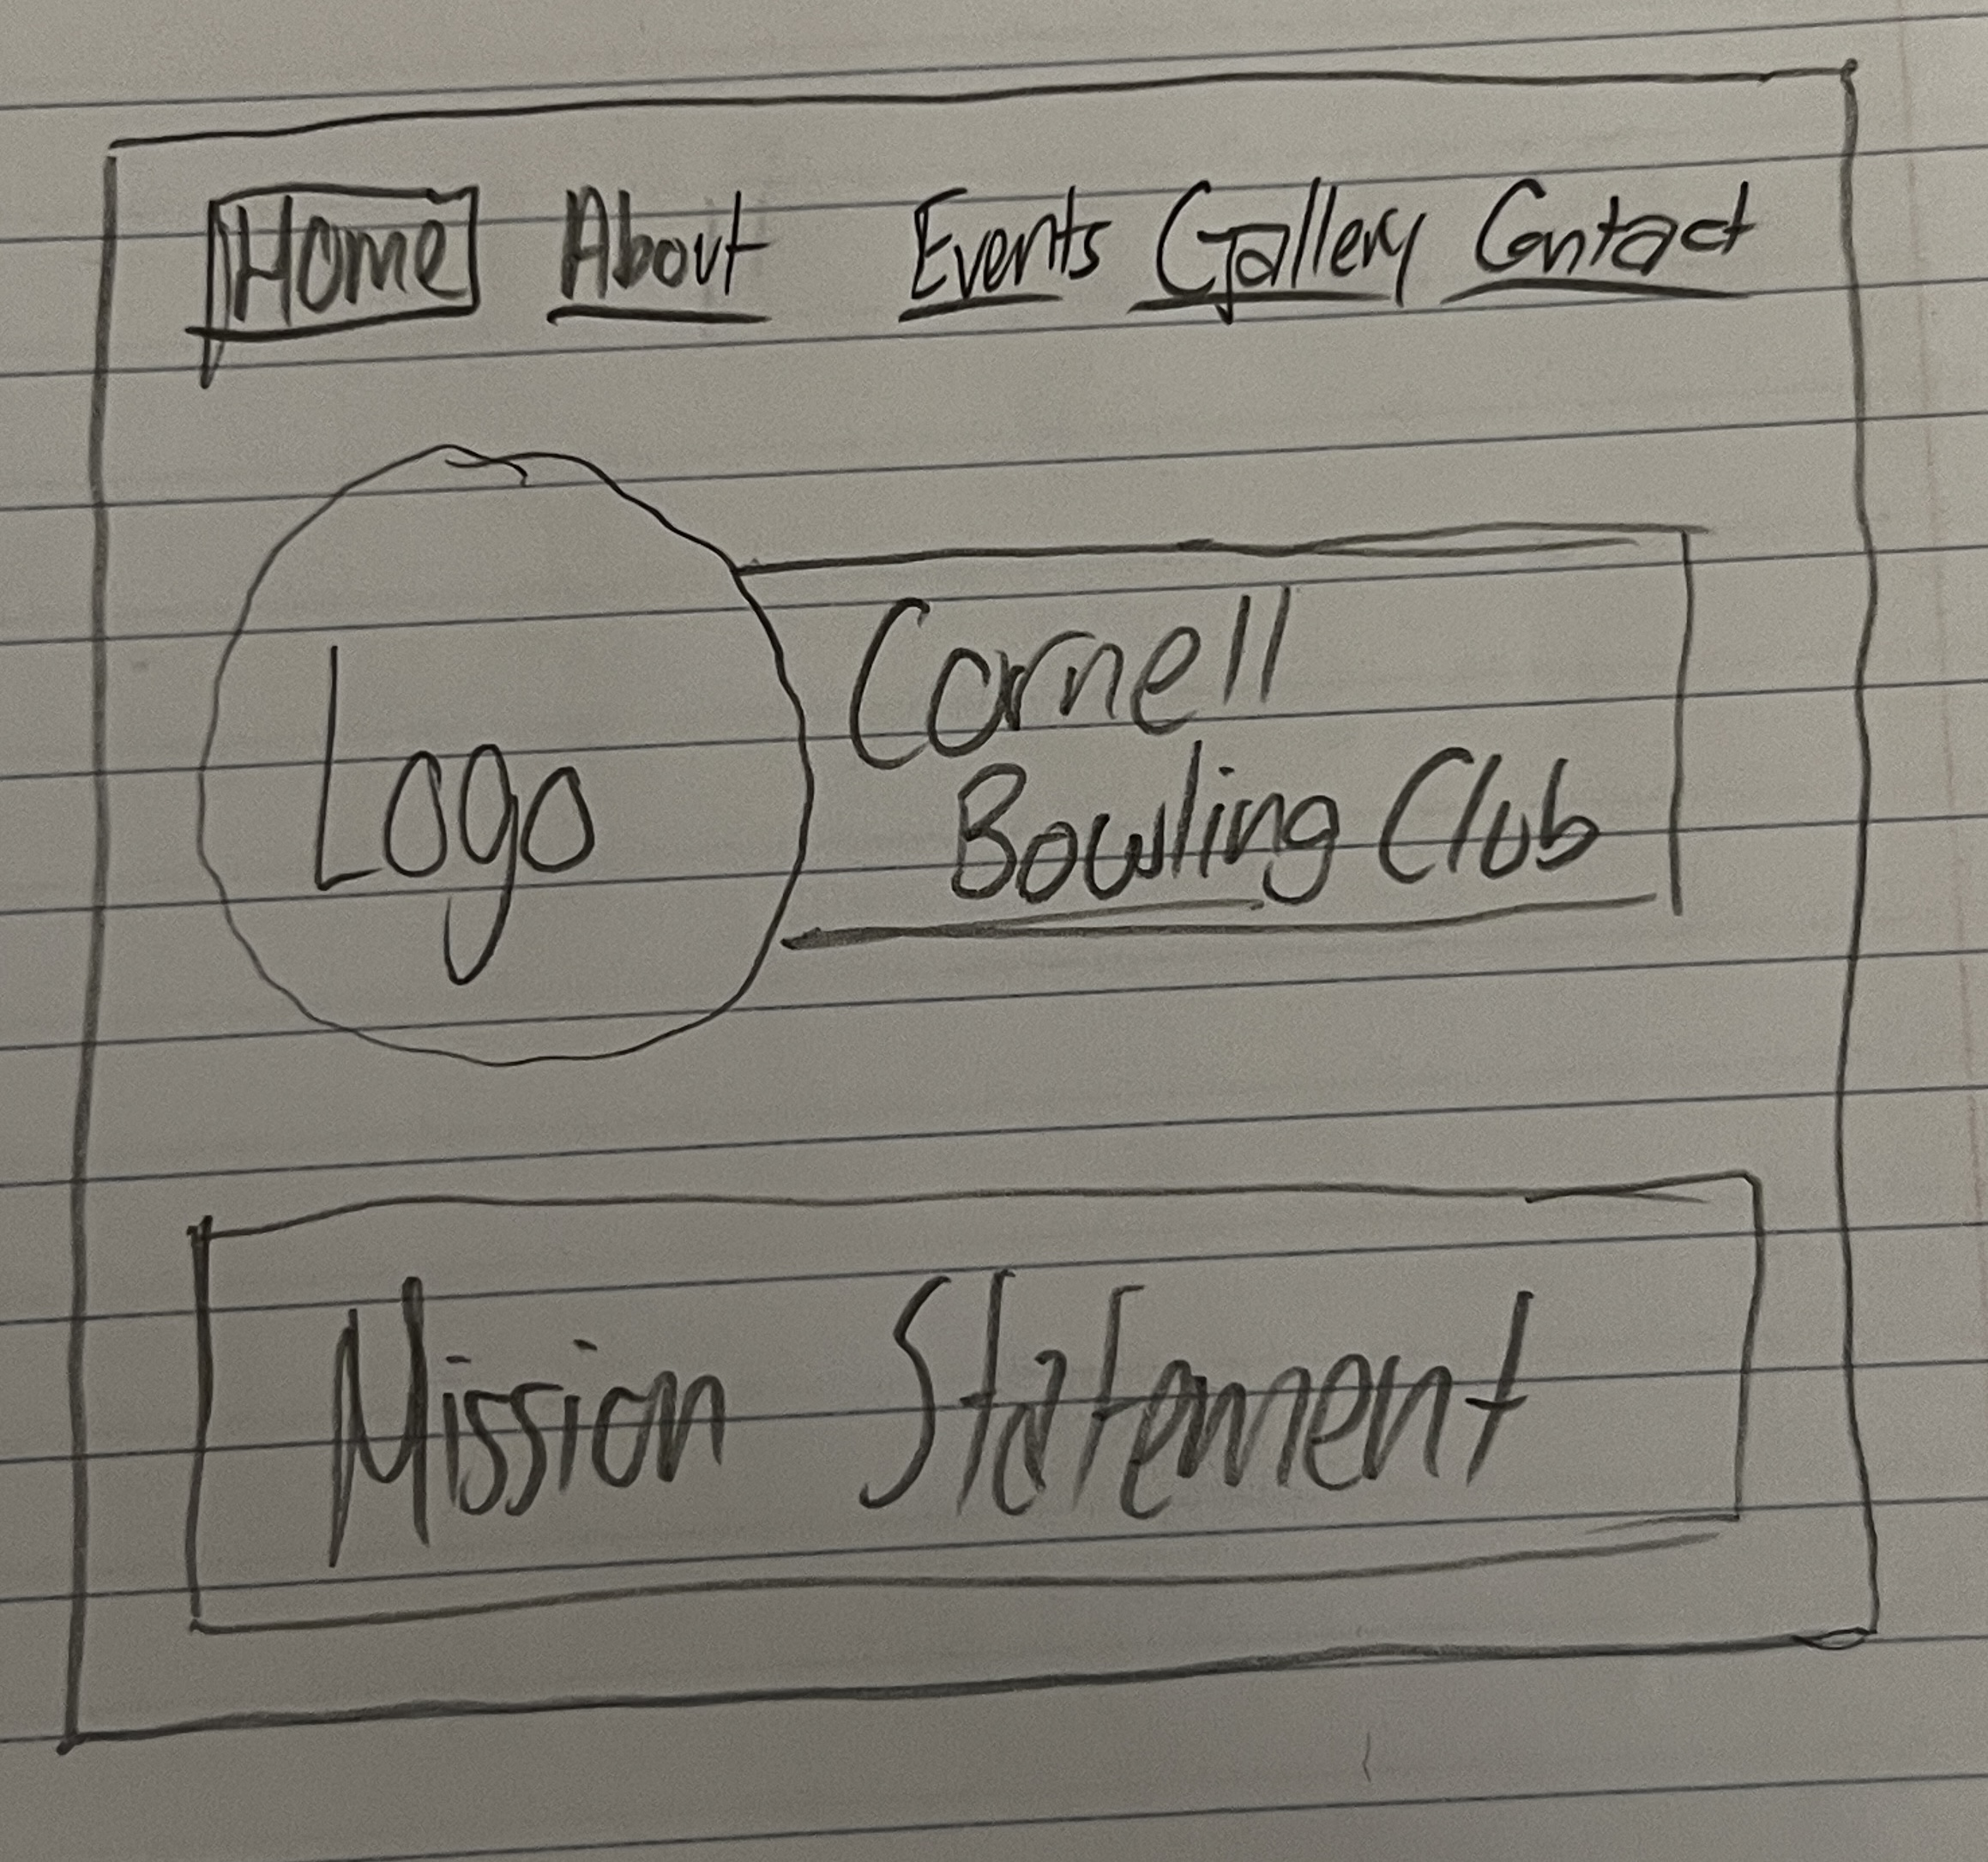 Home About Events Gallery Contact
Logo
Cornell
Bowling Club
Mission Statement